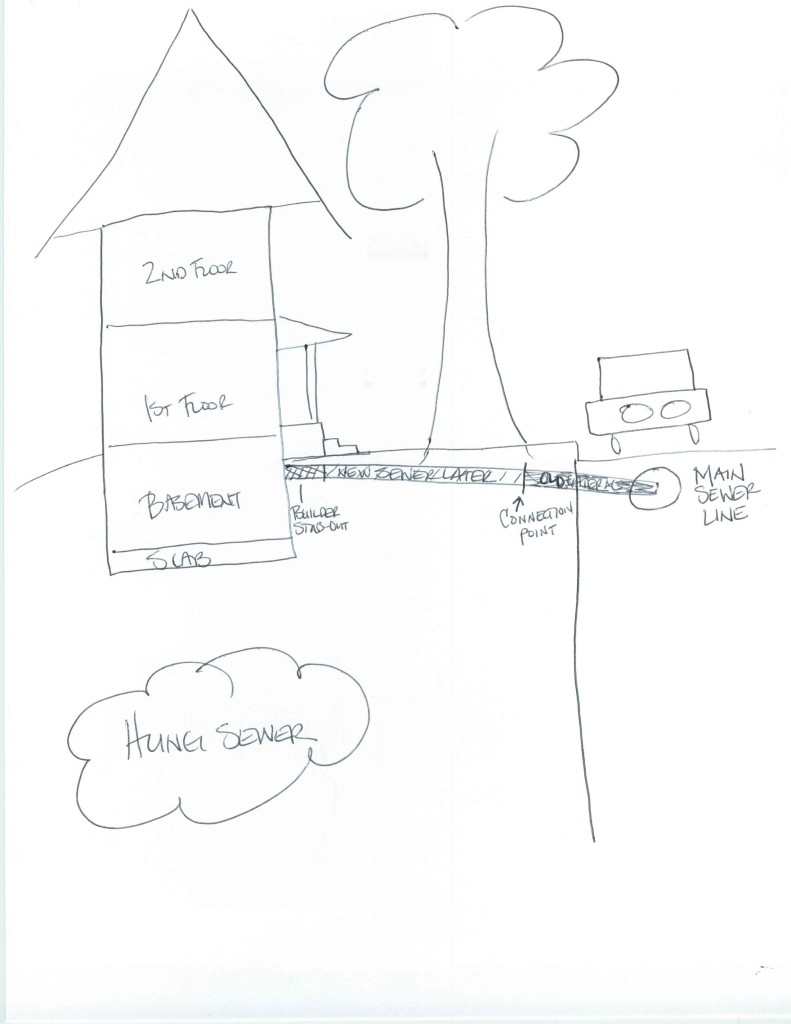 2ND FLOOR
1ST FLOOR
BASEMENT
SLAB
NEW SEWER LATER
OLD LATERAL
BUILDER
STUB-OUT
CONNECTION
POINT
MAIN
SEWER
LINE
HUNG SEWER